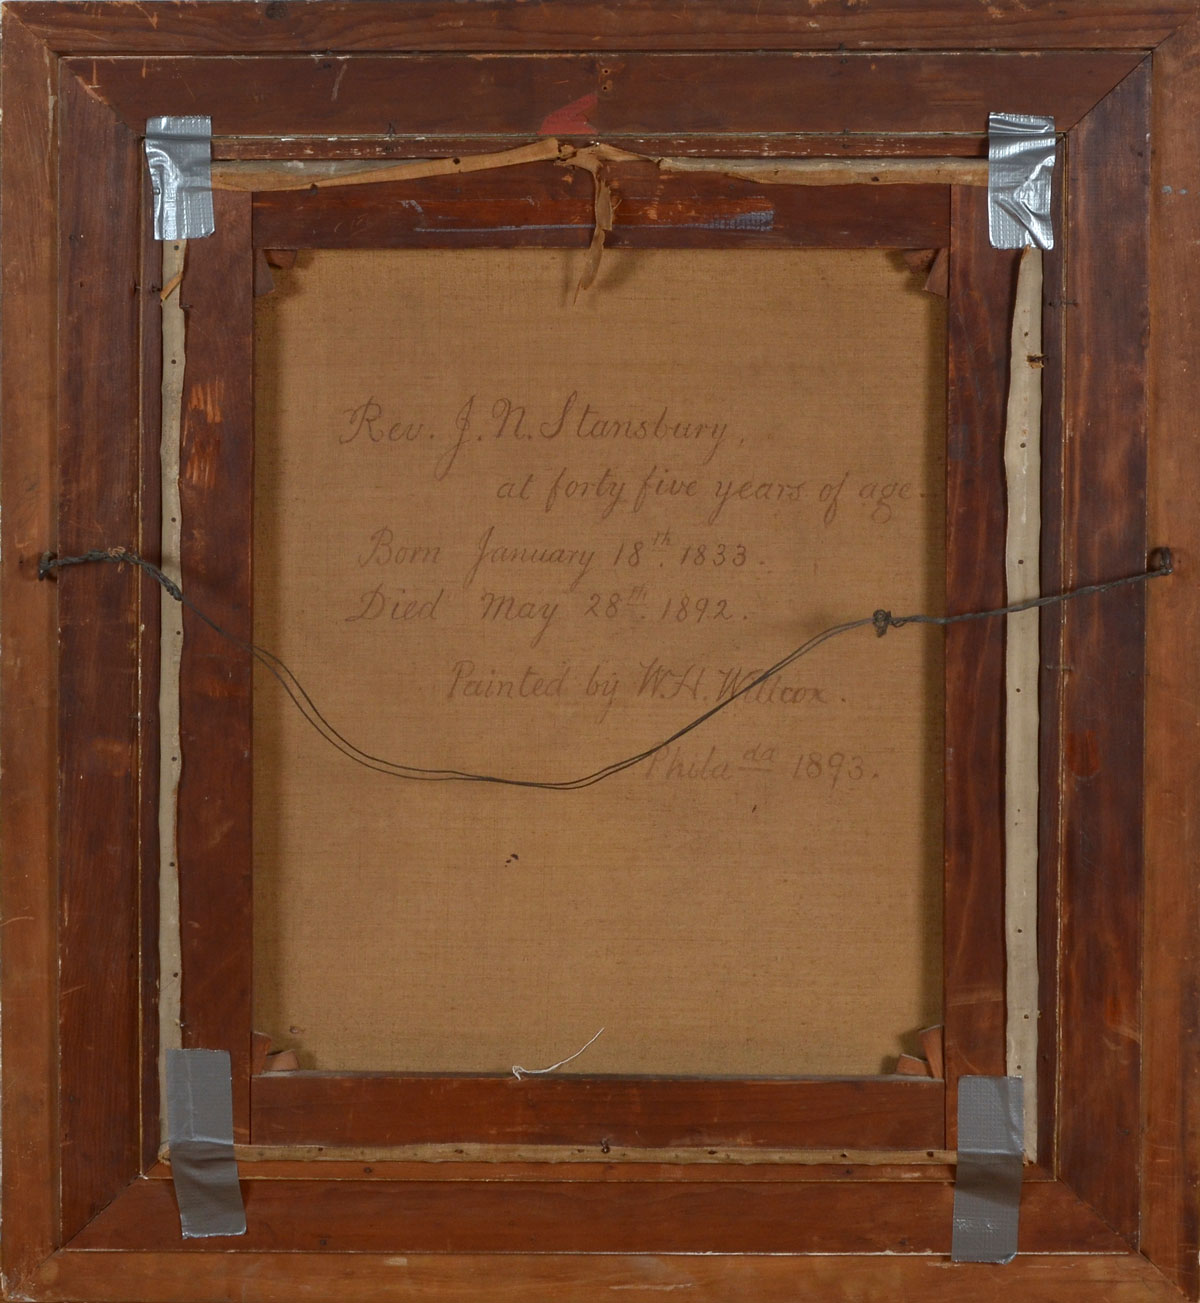 Rev. J. N. Stansbury,
at forty five years of age.
Born January 18th. 1833.
Died May 28th. 1892.
Painted by W. H. Willcox.
Philada 1893.